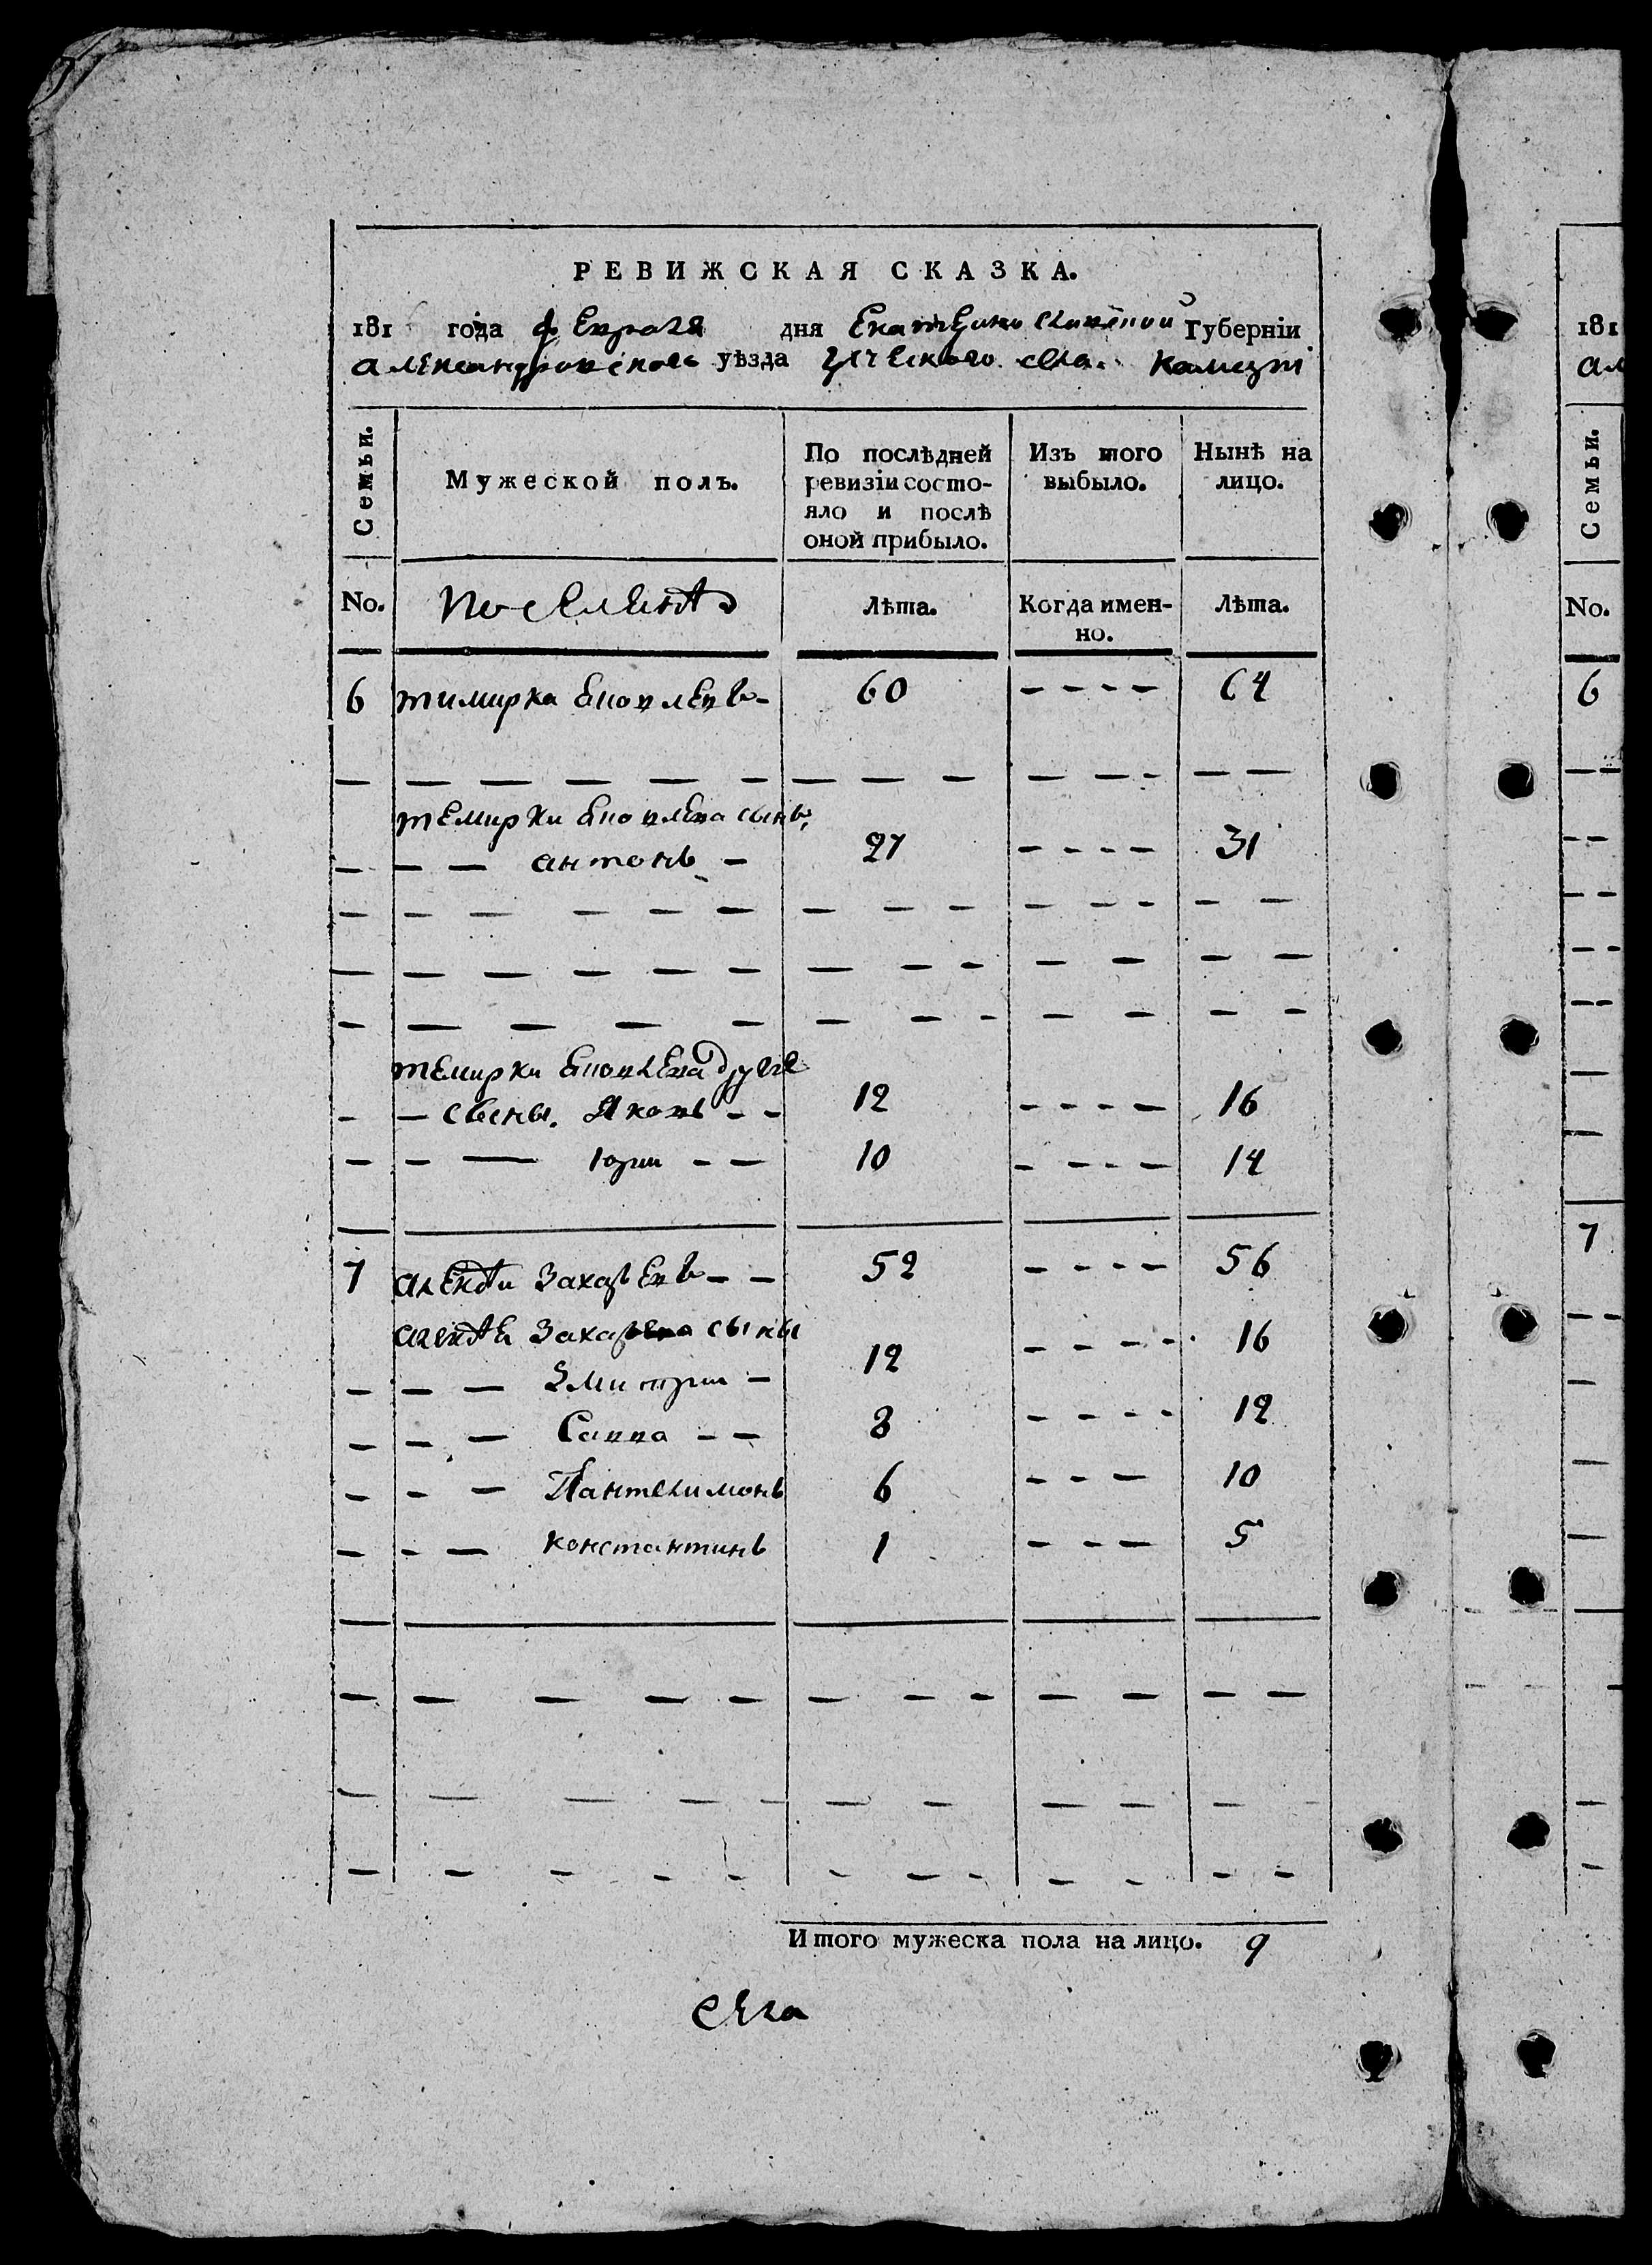 РЕВИЖСКАЯ СКАЗКА.
181 года февраля дня Екатеринославской Губерніи
александровскаго уѣзда греческаго села
Семьи.
Мужеской полъ.
По послѣдней
ревизіи состо-
яло и послѣ
оной прибыло.
Изъ того
выбыло.
Нынѣ на
лицо.
No.
поселянѣ
Лѣта.
Когда имен-
но.
Лѣта.
6 тимирка 60 - - - - 64
темирки сынъ,
- - - антонъ - 27 - - - - 31
темирки другие
- - сыны. Яковъ - - 12 - - - - 16
- - - юрии - - 10 - - - - 14
7 Захарьевъ - - 52 - - - - 56
Захарьева сыны
- - - Дмитрии - 12 - - - - 16
- - - Савва - - 8 - - - - 12
- - - Пантелимонъ 6 - - - 10
- - - константинъ 1 - - - 5
Итого мужеска пола на лицо. 9
села
181
ал
Семьи.
No.
6
7